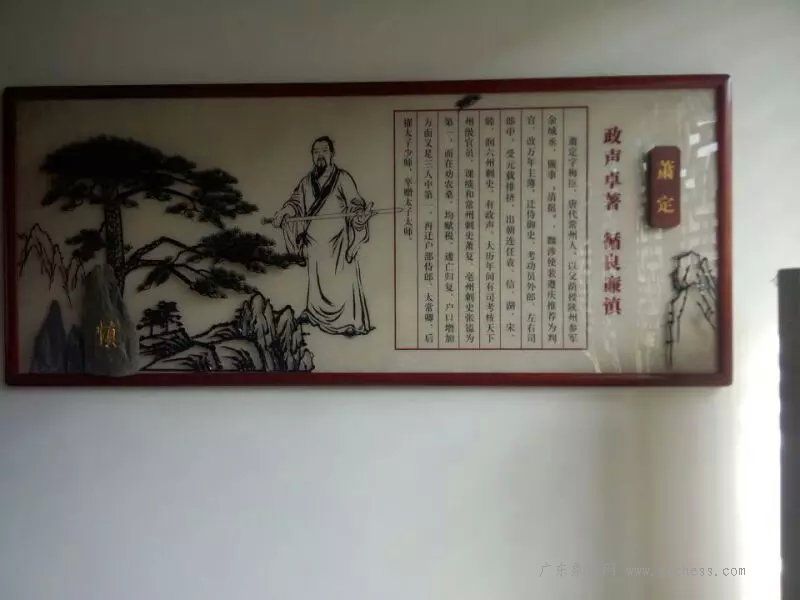 萧定
政声卓著 循良廉慎
萧定字梅臣，唐代常州人，以父荫授陕州参军
金城丞，
官，改万年主簿，迁侍御史、考功员外郎、左右司
郎中，受元载排挤，出朝连任袁、信、湖、宋、
睦、润六州刺史，有政声。大历年间有司考核天下
州级官员，课绩和常州刺史萧复、亳州刺史张镒为
第一，而在劝农桑、均赋税、逋亡归复、户口增加
方面又是三人中第一，再迁户部侍郎、太常卿，后
擢太子少师，卒赠太子太师。
慎